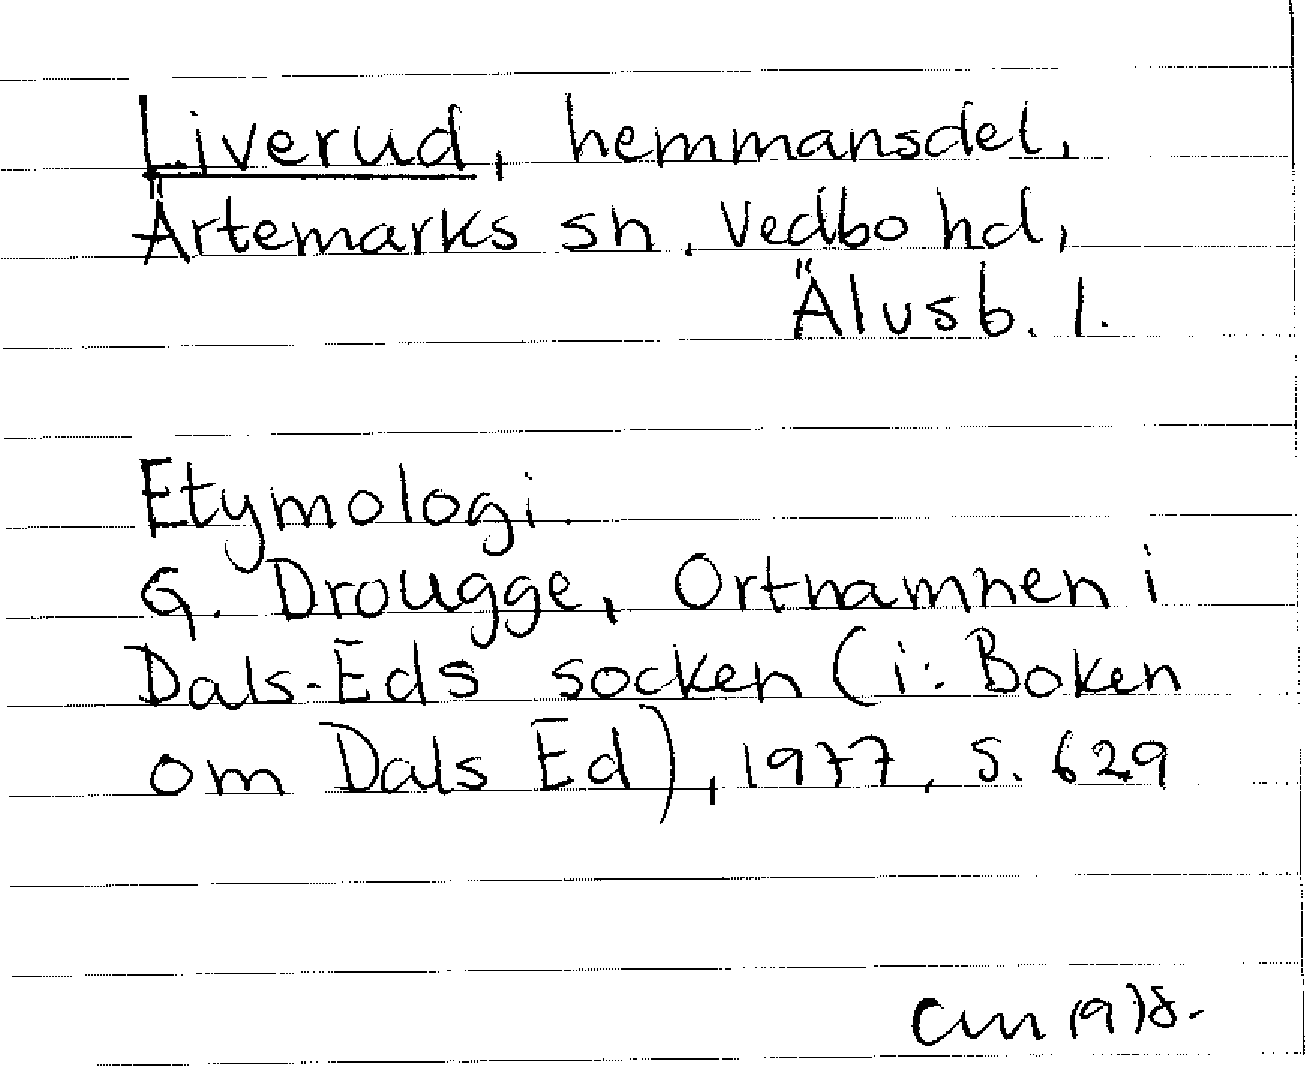 Liverud, hemmansdel,
Ärtemarks sn, Vedbo hd,
Älvsb. l.
Etymologi.
G. Drougge, Ortnamnen i
Dals-Eds socken (i: Boken
om Dals Ed), 1977, s. 629